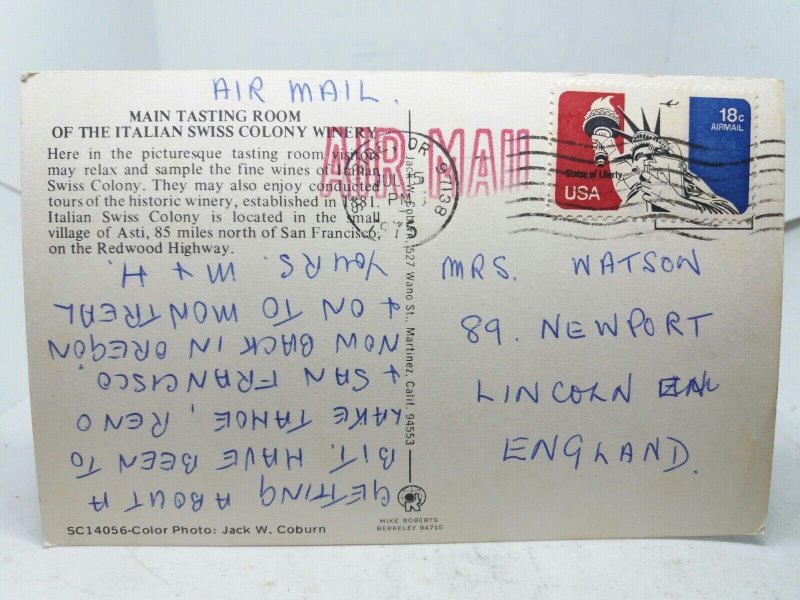 AIR MAIL.
MAIN TASTING ROOM
OF THE ITALIAN SWISS COLONY WINERY
Here in the picturesque tasting room visitors
may relax and sample the fine wines of Italian
Swiss Colony. They may also enjoy conducted
tours of the historic winery, established in 1881.
Italian Swiss Colony is located in the small
village of Asti, 85 miles north of San Francisco,
on the Redwood Highway.
GETTING ABOUT A
BIT. HAVE BEEN TO
LAKE TAHOE, RENO
& SAN FRANCISCO.
NOW BACK IN OREGON
& ON TO MONTREAL
YOURS. M & H.
SC14056-Color Photo: Jack W. Coburn
Jack W. Coburn, 1527 Wano St., Martinez, Calif. 94553
MIKE ROBERTS
BERKELEY 94710
AIR MAIL
OR 97138
18c
AIRMAIL
Statue of Liberty
USA
MRS. WATSON
89. NEWPORT
LINCOLN
ENGLAND.